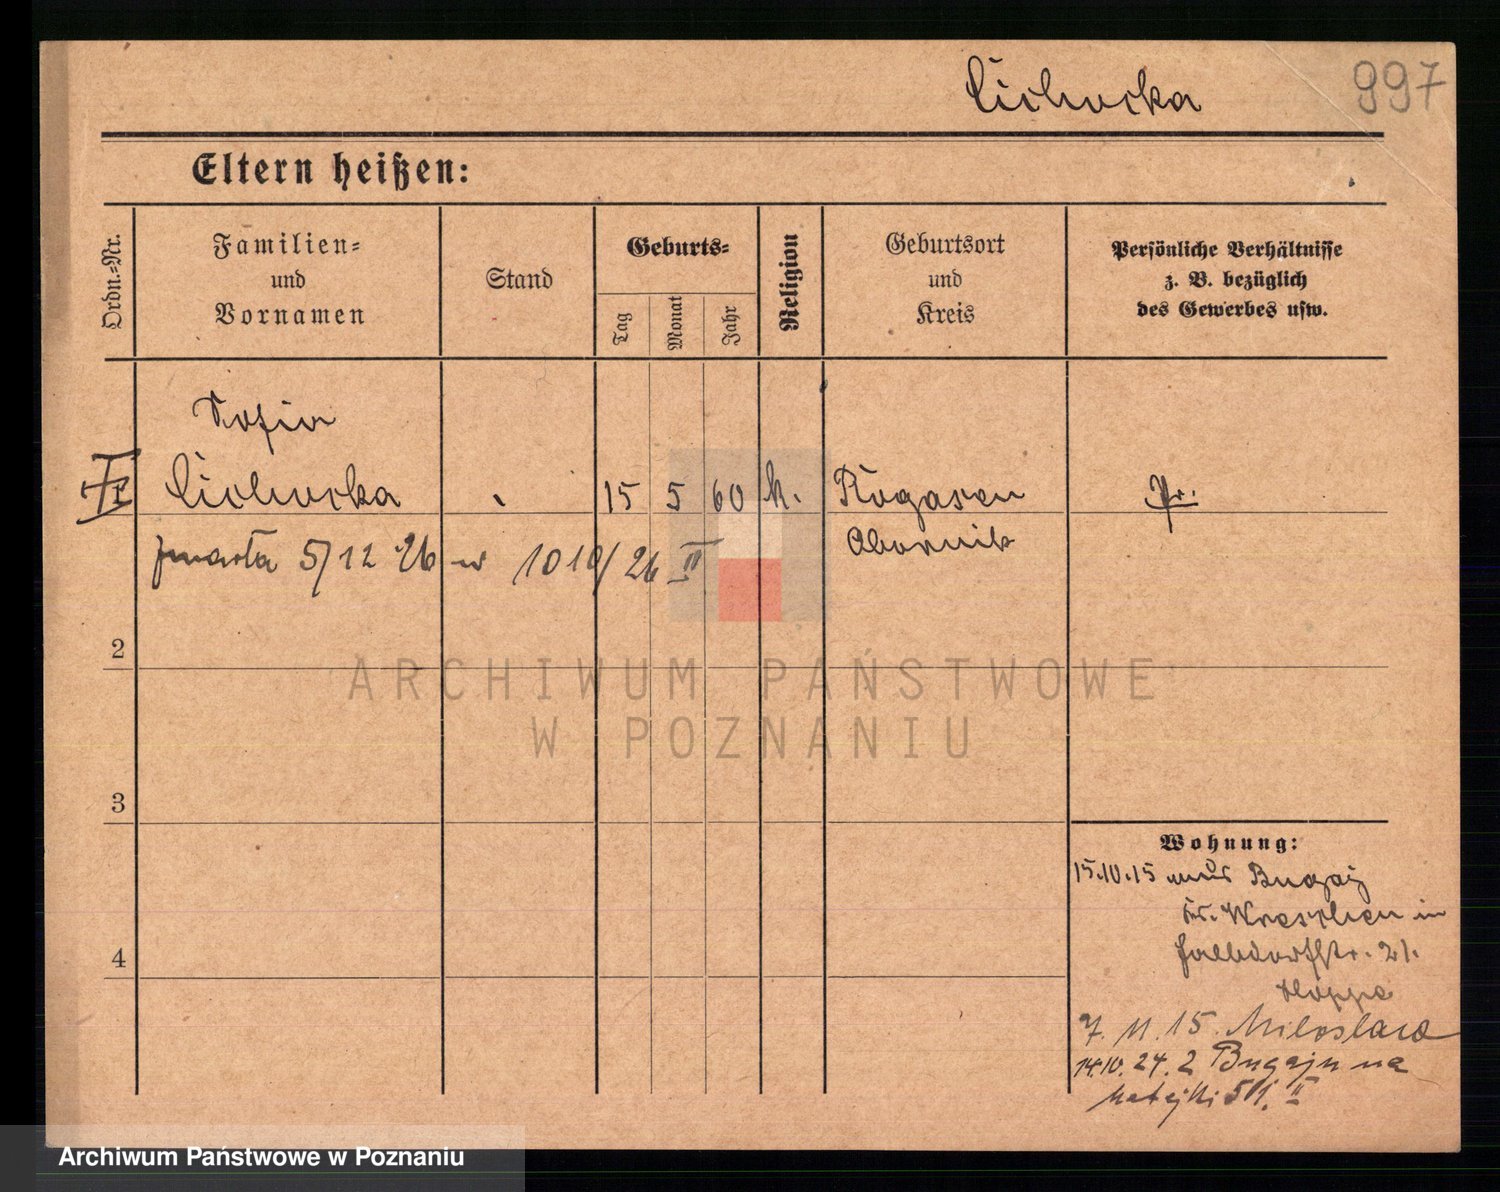 Cichocka 997
Eltern heißen:
Ordn.=Nr.
Familien=
und
Vornamen
Stand
Geburts=
Tag
Monat
Jahr
Religion
Geburtsort
und
Kreis
Persönliche Verhältnisse
z. B. bezüglich
des Gewerbes usw.
Sofia
Cichocka 15 5 60 k. Rogasen Pr.
Obornik
zmarła 5/12 26 w 1010/26 II
2
3
4
Wohnung:
15.10.15 aus Bugaj
Kr. Wreschen in
str. 21.
7.11.15. Miloslaw
14.10.24. z Bugaju na
Matejki 51. II
ARCHIWUM PAŃSTWOWE
W POZNANIU
Archiwum Państwowe w Poznaniu